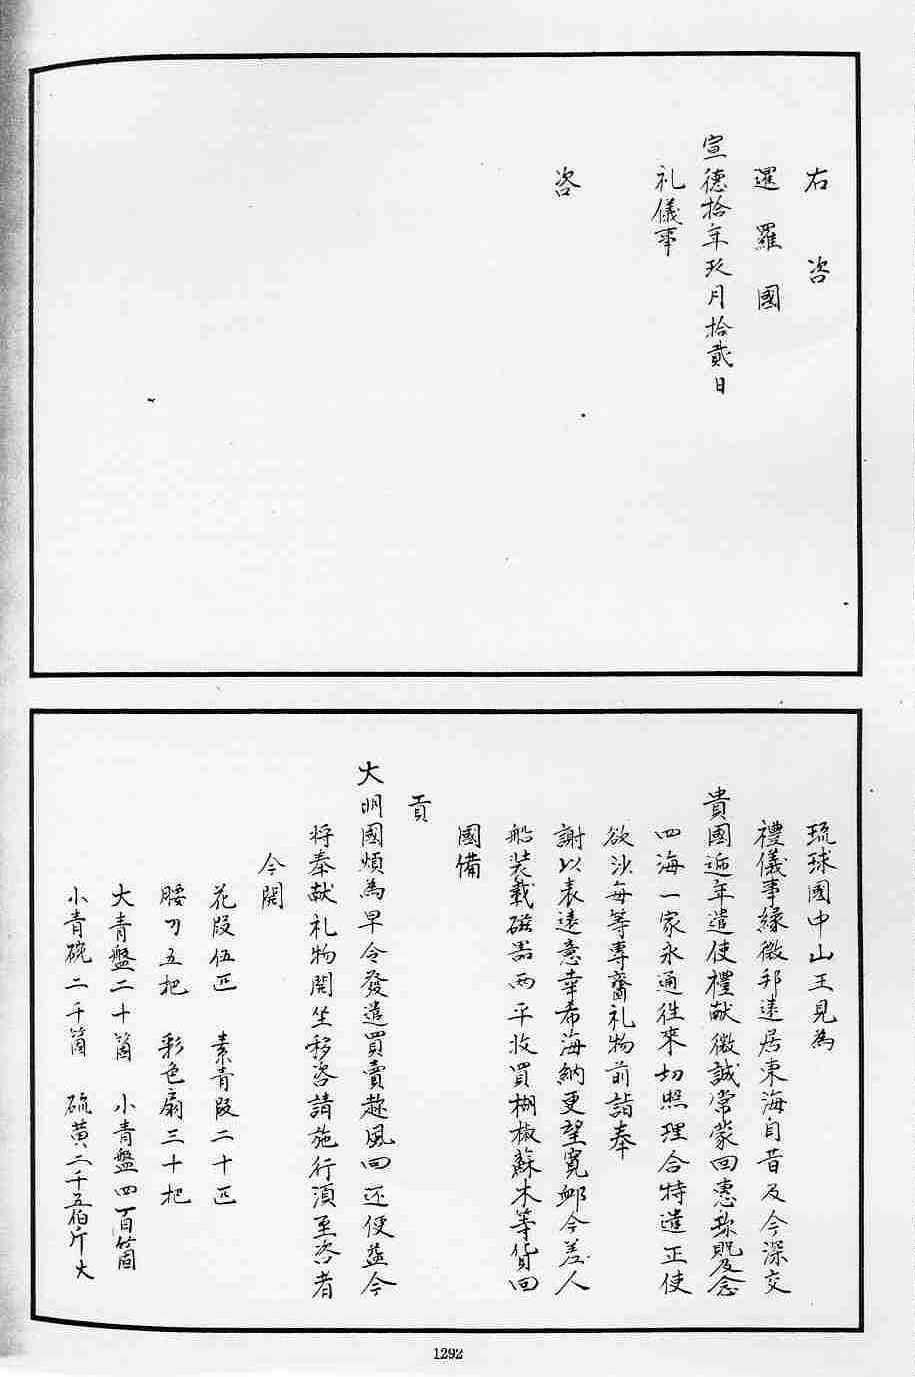 右咨
暹羅國
宣德拾年玖月拾貳日
礼儀事
咨
琉球國中山王見為
禮儀事緣微邦遠居東海自昔及今深交
貴國逓年遣使禮献微誠常蒙回惠珎貺及念
四海一家永通徃來切照理合特遣正使
欲沙每等專齎礼物前詣奉
謝以表遠意幸希海納更望寬䘏今差人
船装載磁噐兩平收買胡椒蘇木等貨回
國備
貢
大明國煩為早令發遣買賣趂風回还便益今
将奉献礼物開坐移咨請施行湏至咨者
今開
花段伍匹 素青段二十匹
腰刀五把 彩色扇三十把
大青盤二十箇 小青盤四百箇
小青碗二千箇 硫黄二千五伯斤大
1292